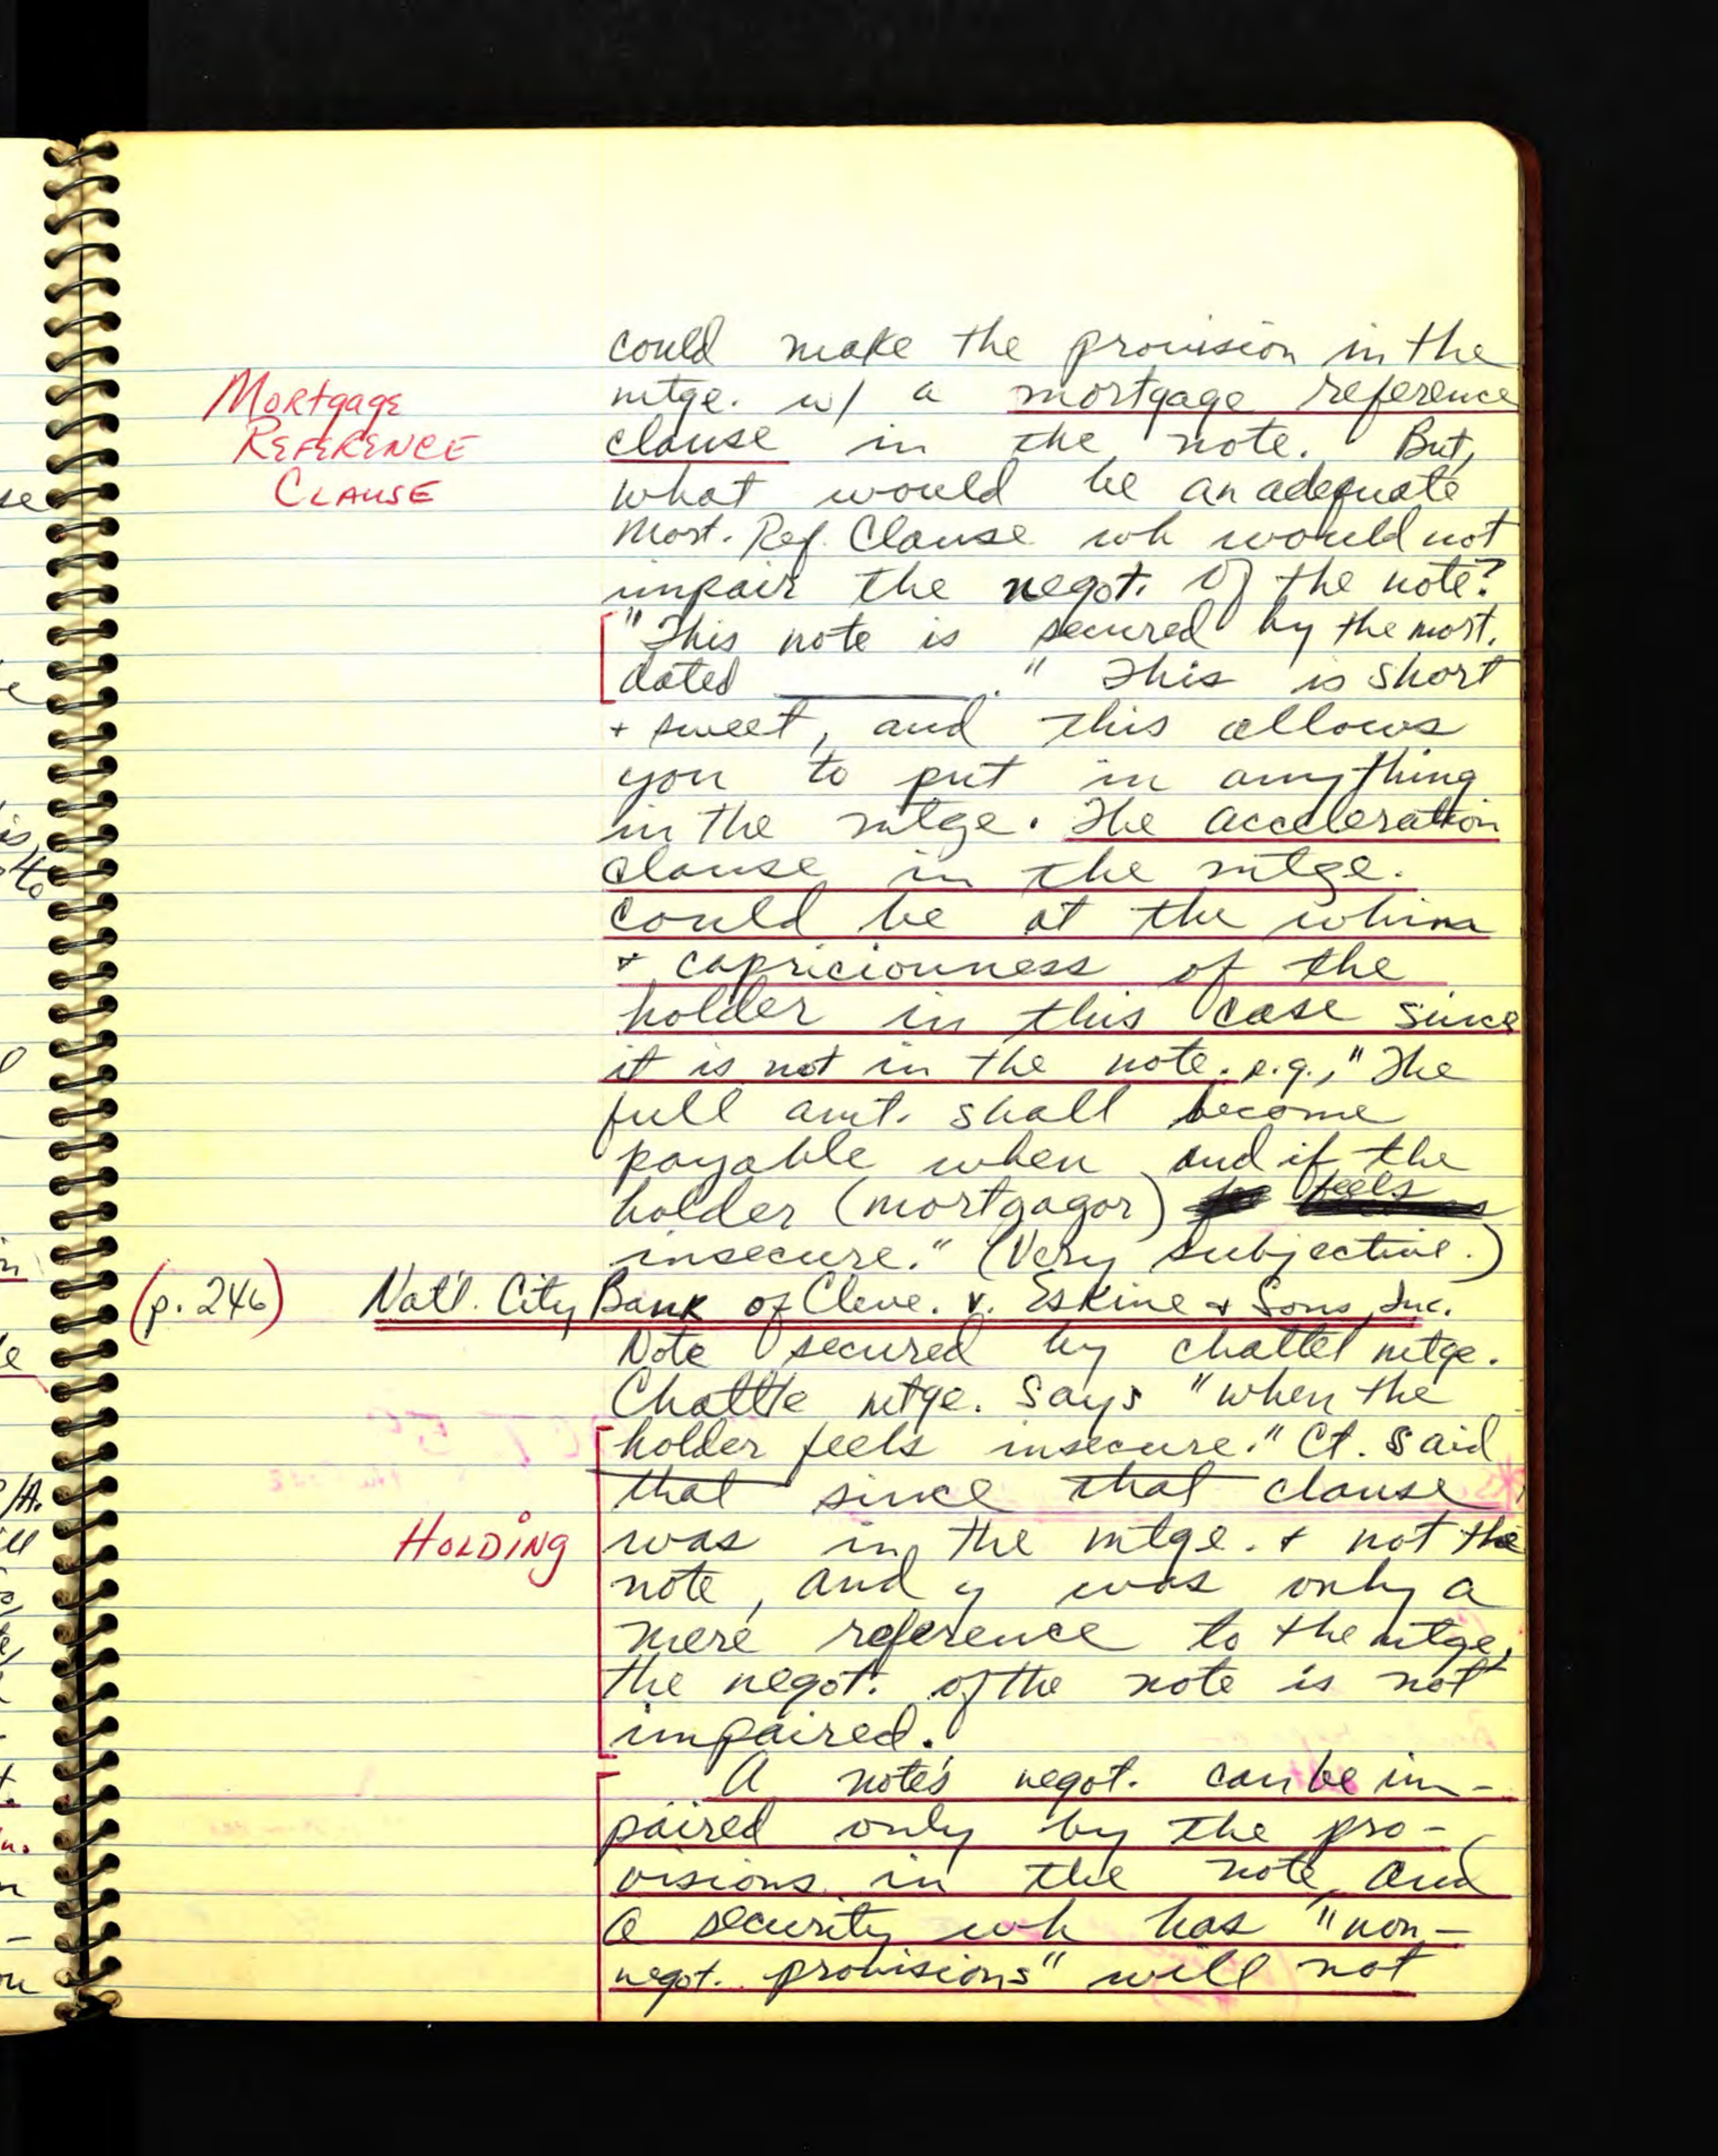 could make the provision in the
Mortgage mtge. w/ a mortgage reference
Reference clause in the note. But,
Clause what would be an adequate
Mort. Ref. Clause wh would not
impair the negot. of the note?
"This note is secured by the mort.
dated ________." This is short
+ sweet, and this allows
you to put in anything
in the mtge. The acceleration
clause in the mtge.
could be at the whim
+ capriciousness of the
holder in this case since
it is not in the note. e.g., "The
full amt. shall become
payable when and if the
holder (mortgagor) feels
insecure." (Very subjective.)
(p. 246) Nat'l. City Bank of Cleve. v. Eskine + Sons, Inc.
Note secured by chattel mtge.
Chattle mtge. says "when the
holder feels insecure." Ct. said
that since that clause
Holding was in the mtge. + not the
note, and y was only a
mere reference to the mtge,
the negot. of the note is not
impaired.
A note's negot. can be im-
paired only by the pro-
visions in the note, and
a security wh has "non-
negot. provisions" will not